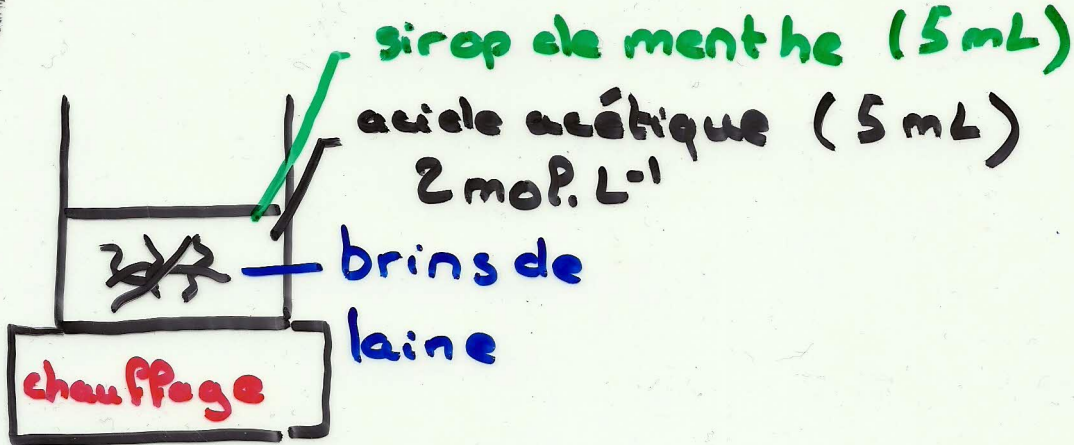 sirop de menthe (5 mL)
acide acétique (5 mL)
2 mol. L-1
brins de
laine
chauffage